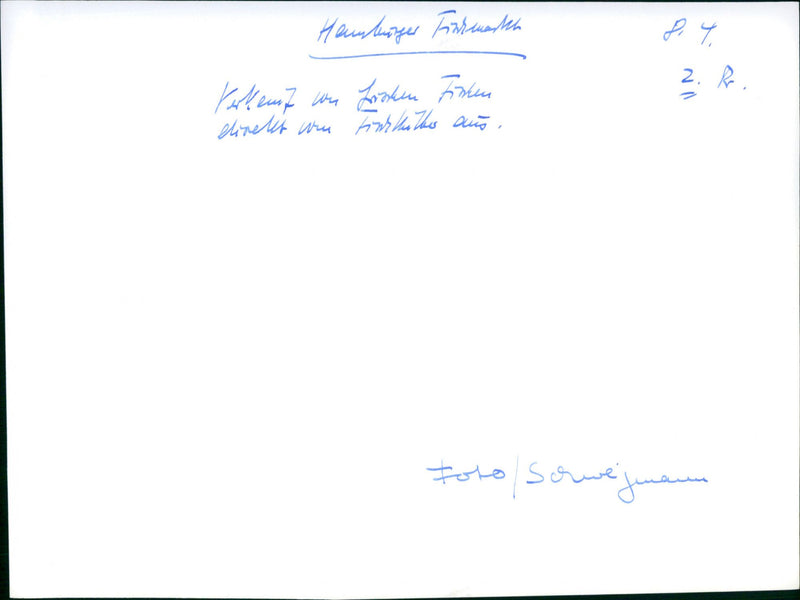 Hamburger Fischmarkt
8. 4.
2. R.
Verkauf von frischen Fischen
direkt vom Fischkutter aus.
Foto/Schweigmann